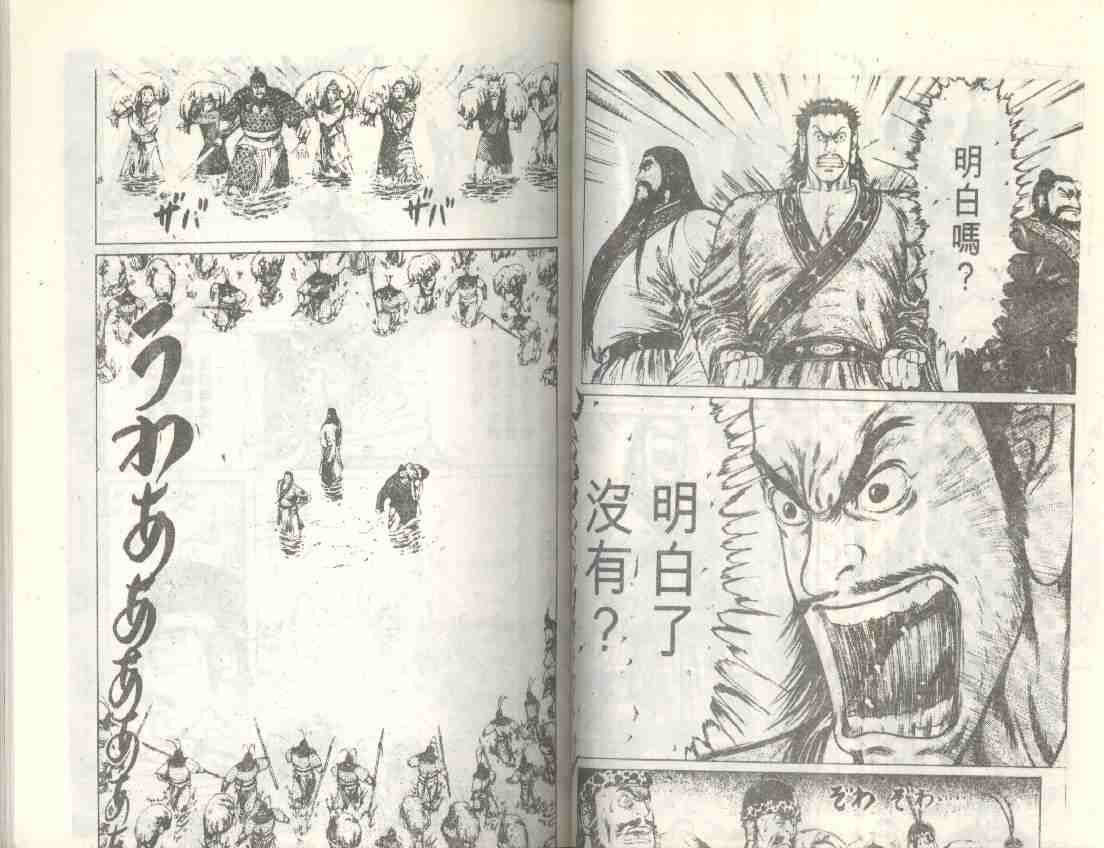 明白嗎?
明白了
沒有?
ぞわ ぞわ……
ザバ
ザバ
うわあああああああ